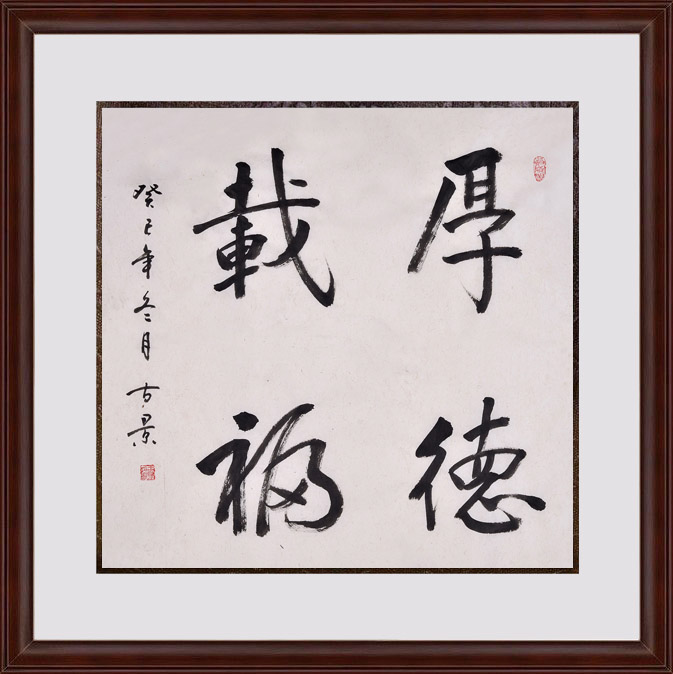 厚德
載福
癸巳年冬月 古景